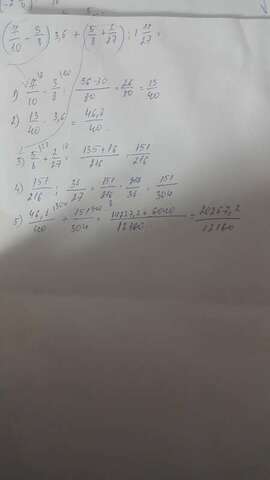 (7/10 - 5/8) 3,6 + (5/8 + 2/27) : 1 11/27 =
1) 7/10 - 3/8 = 56-30/80 = 26/80 = 13/40
2) 13/40 · 3,6 = 46,8/40
3) 5/8 + 2/27 = 135+16/216 = 151/216
4) 151/216 : 38/27 = 151/216 · 27/38 = 151/304
5) 46,8/40 + 151/304 = 14227,2+6040/12160 = 20267,2/12160